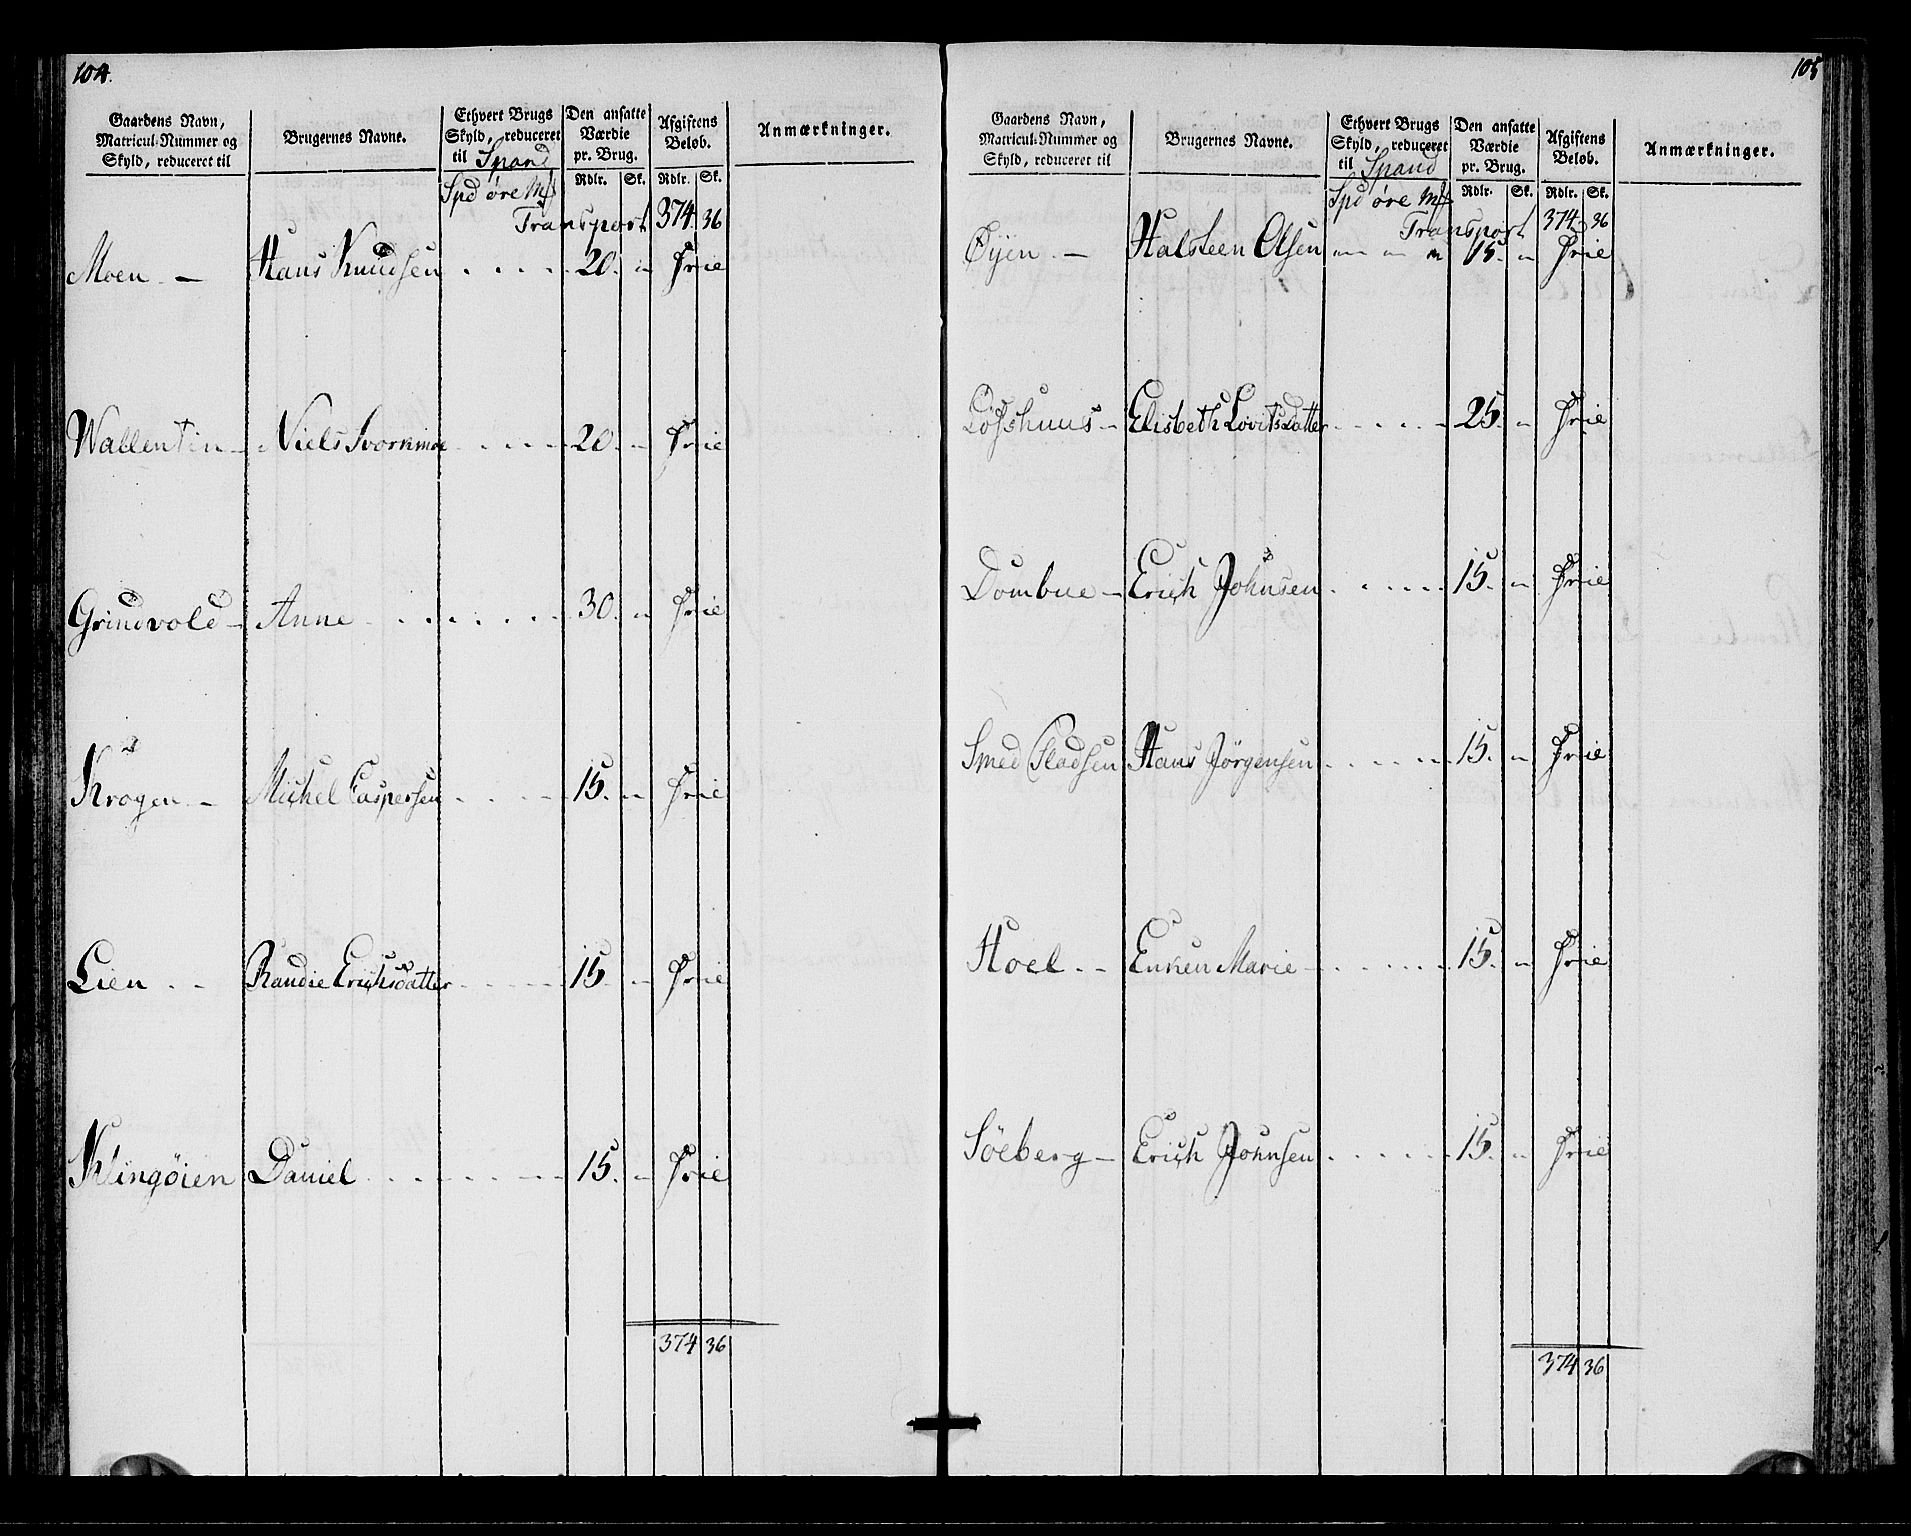 104.
Gaardens Navn, Matricul-Nummer og Skyld, reduceret til
Brugernes Navne.
Ethvert Brugs Skyld, reduceret til Spand
Den ansatte Værdie pr. Brug.
Afgiftens Beløb.
Anmærkninger.
Spd øre Mk
Rdlr. Sk. Rdlr. Sk.
Transport 374. 36
Moen — Hans Knudsen . . . . 20. " Frie
Wallentin — Niels Svorkmoe . . . . 20. " Frie
Grindvold — Anne . . . . . . . 30. " Frie
Krogen — Michel Caspersen . . . . 15. " Frie
Lien . - Randie Erichsdatter . . . . 15. " Frie
Klingøien Daniel . . . . . . . 15. " Frie
374 36
105
Gaardens Navn, Matricul-Nummer og Skyld, reduceret til
Brugernes Navne.
Ethvert Brugs Skyld, reduceret til Spand
Den ansatte Værdie pr. Brug.
Afgiftens Beløb.
Anmærkninger.
Spd øre Mk
Rdlr. Sk. Rdlr. Sk.
Transport 374 36
Øyen — Halsteen Olsen " " " 15. " Frie
Løfshuus — Elisbeth Lovitsdatter . . . . . 25. " Frie
Dombue — Erich Johnsen . . . . . 15. " Frie
Smed Pladsen Hans Jörgensen . . . . . 15. " Frie
Hoel . - Enken Marie — . . . . . 15. " Frie
Söeberg — Erich Johnsen . . . . . 15. " Frie
374 36